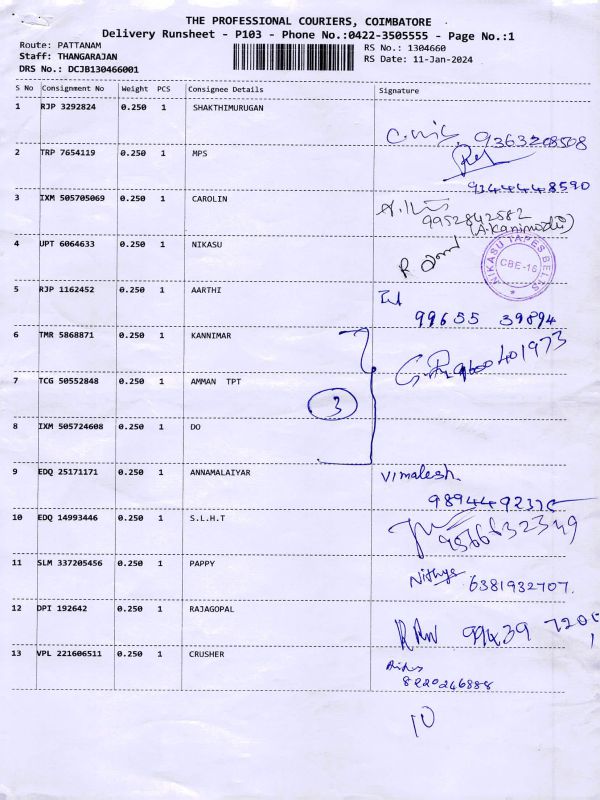 THE PROFESSIONAL COURIERS, COIMBATORE
Delivery Runsheet - P103 - Phone No.:0422-3505555 - Page No.:1
Route: PATTANAM
Staff: THANGARAJAN
DRS No.: DCJB130466001
RS No.: 1304660
RS Date: 11-Jan-2024
S No Consignment No Weight PCS Consignee Details Signature
1 RJP 3292824 0.250 1 SHAKTHIMURUGAN
9363208508
2 TRP 7654119 0.250 1 MPS
9344448590
3 IXM 505705069 0.250 1 CAROLIN
9952842582
(A.Kanimozhi)
4 UPT 6064633 0.250 1 NIKASU
R
NIKASU TAPES BELTS
CBE-16
5 RJP 1162452 0.250 1 AARTHI
99655 39894
6 TMR 5868871 0.250 1 KANNIMAR
9600401973
7 TCG 50552848 0.250 1 AMMAN TPT
3
8 IXM 505724608 0.250 1 DO
9 EDQ 25171171 0.250 1 ANNAMALAIYAR
Vimalesh
10 EDQ 14993446 0.250 1 S.L.H.T
9566632349
11 SLM 337205456 0.250 1 PAPPY
Nithya 6381932707.
12 DPI 192642 0.250 1 RAJAGOPAL
99439 7200
13 VPL 221606511 0.250 1 CRUSHER
8220246888
10